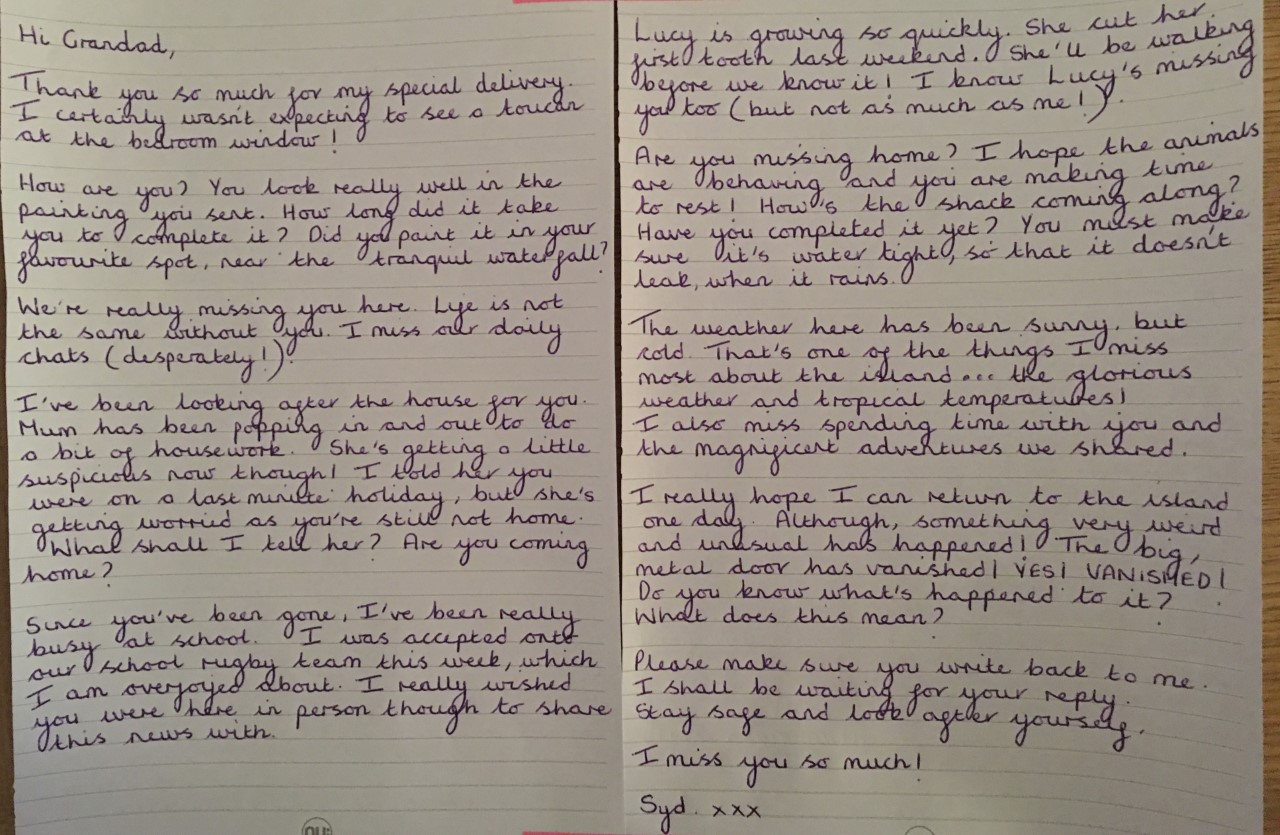 Hi Grandad,
Thank you so much for my special delivery.
I certainly wasn't expecting to see a toucan
at the bedroom window!
How are you? You look really well in the
painting you sent. How long did it take
you to complete it? Did you paint it in your
favourite spot, near the tranquil waterfall?
We're really missing you here. Life is not
the same without you. I miss our daily
chats (desperately!).
I've been looking after the house for you.
Mum has been popping in and out to do
a bit of housework. She's getting a little
suspicious now though! I told her you
were on a last minute holiday, but she's
getting worried as you're still not home.
What shall I tell her? Are you coming
home?
Since you've been gone, I've been really
busy at school. I was accepted onto
our school rugby team this week, which
I am overjoyed about. I really wished
you were here in person though to share
this news with.
Lucy is growing so quickly. She cut her
first tooth last weekend. She'll be walking
before we know it! I know Lucy's missing
you too (but not as much as me!).
Are you missing home? I hope the animals
are behaving and you are making time
to rest! How's the shack coming along?
Have you completed it yet? You must make
sure it's water tight, so that it doesn't
leak, when it rains.
The weather here has been sunny, but
cold. That's one of the things I miss
most about the island... the glorious
weather and tropical temperatures!
I also miss spending time with you and
the magnificent adventures we shared.
I really hope I can return to the island
one day. Although, something very weird
and unusual has happened! The big,
metal door has vanished! YES! VANISHED!
Do you know what's happened to it?
What does this mean?
Please make sure you write back to me.
I shall be waiting for your reply.
Stay safe and look after yourself.
I miss you so much!
Syd. xxx